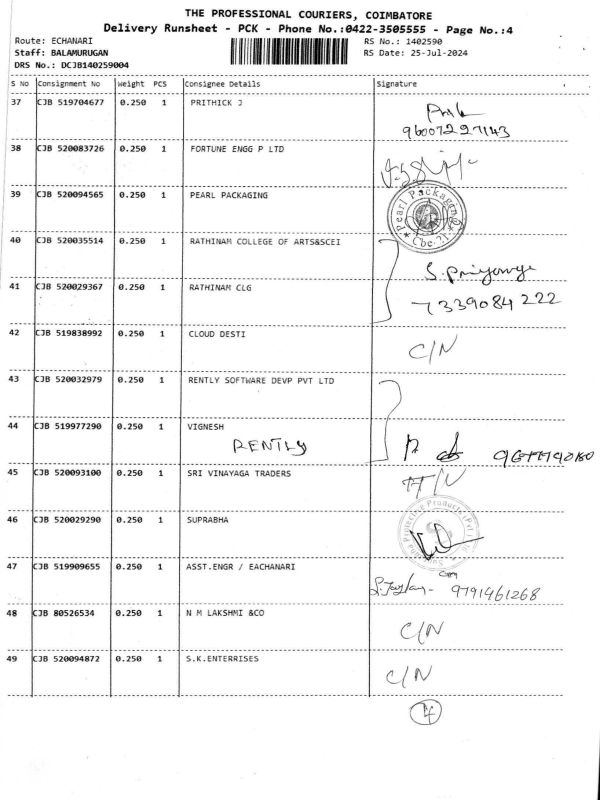 THE PROFESSIONAL COURIERS, COIMBATORE
Delivery Runsheet - PCK - Phone No.:0422-3505555 - Page No.:4
Route: ECHANARI RS No.: 1402590
Staff: BALAMURUGAN RS Date: 25-Jul-2024
DRS No.: DCJB140259004
S No Consignment No Weight PCS Consignee Details Signature
37 CJB 519704677 0.250 1 PRITHICK J
96007227143
38 CJB 520083726 0.250 1 FORTUNE ENGG P LTD
39 CJB 520094565 0.250 1 PEARL PACKAGING
Pearl Packagang
Cbe-21
40 CJB 520035514 0.250 1 RATHINAM COLLEGE OF ARTS&SCEI
41 CJB 520029367 0.250 1 RATHINAM CLG
7339084222
42 CJB 519838992 0.250 1 CLOUD DESTI C/N
43 CJB 520032979 0.250 1 RENTLY SOFTWARE DEVP PVT LTD
44 CJB 519977290 0.250 1 VIGNESH
RENTLY
45 CJB 520093100 0.250 1 SRI VINAYAGA TRADERS
46 CJB 520029290 0.250 1 SUPRABHA
Protective Products (Pvt) Ltd
47 CJB 519909655 0.250 1 ASST.ENGR / EACHANARI
9791461268
48 CJB 80526534 0.250 1 N M LAKSHMI &CO C/N
49 CJB 520094872 0.250 1 S.K.ENTERRISES C/N
4